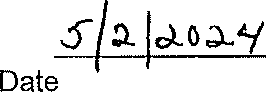 Date 5/2/2024